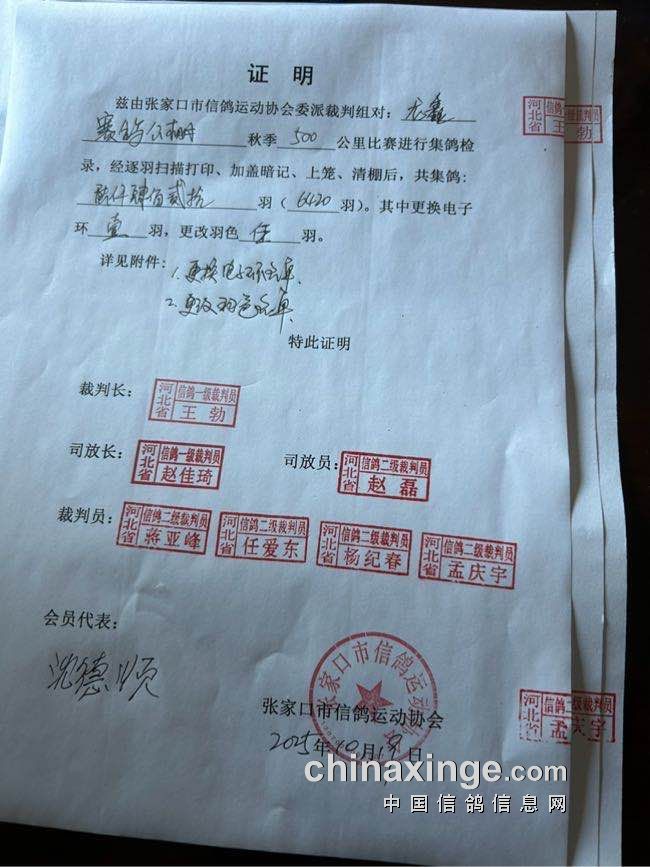 证 明
兹由张家口市信鸽运动协会委派裁判组对: 龙鑫
赛鸽公棚 秋季 500 公里比赛进行集鸽检
录，经逐羽扫描打印、加盖暗记、上笼、清棚后，共集鸽:
陆仟肆佰贰拾 羽（6420 羽）。其中更换电子
环 壹 羽，更改羽色 羽。
详见附件: 1.更换电子环清单
2.更改羽色清单
特此证明
裁判长: 河北省 信鸽一级裁判员 王勃
司放长: 河北省 信鸽一级裁判员 赵佳琦 司放员: 河北省 信鸽二级裁判员 赵磊
裁判员: 河北省 信鸽二级裁判员 蒋亚峰 河北省 信鸽二级裁判员 任爱东 河北省 信鸽二级裁判员 杨纪春 河北省 信鸽二级裁判员 孟庆宇
会员代表:
沈德顺
张家口市信鸽运动协会
张家口市信鸽运动协会
2025年10月19日
河北省 级裁判员 王勃
河北省 信鸽二级裁判员 孟庆宇
chinaxinge.com
中国信鸽信息网